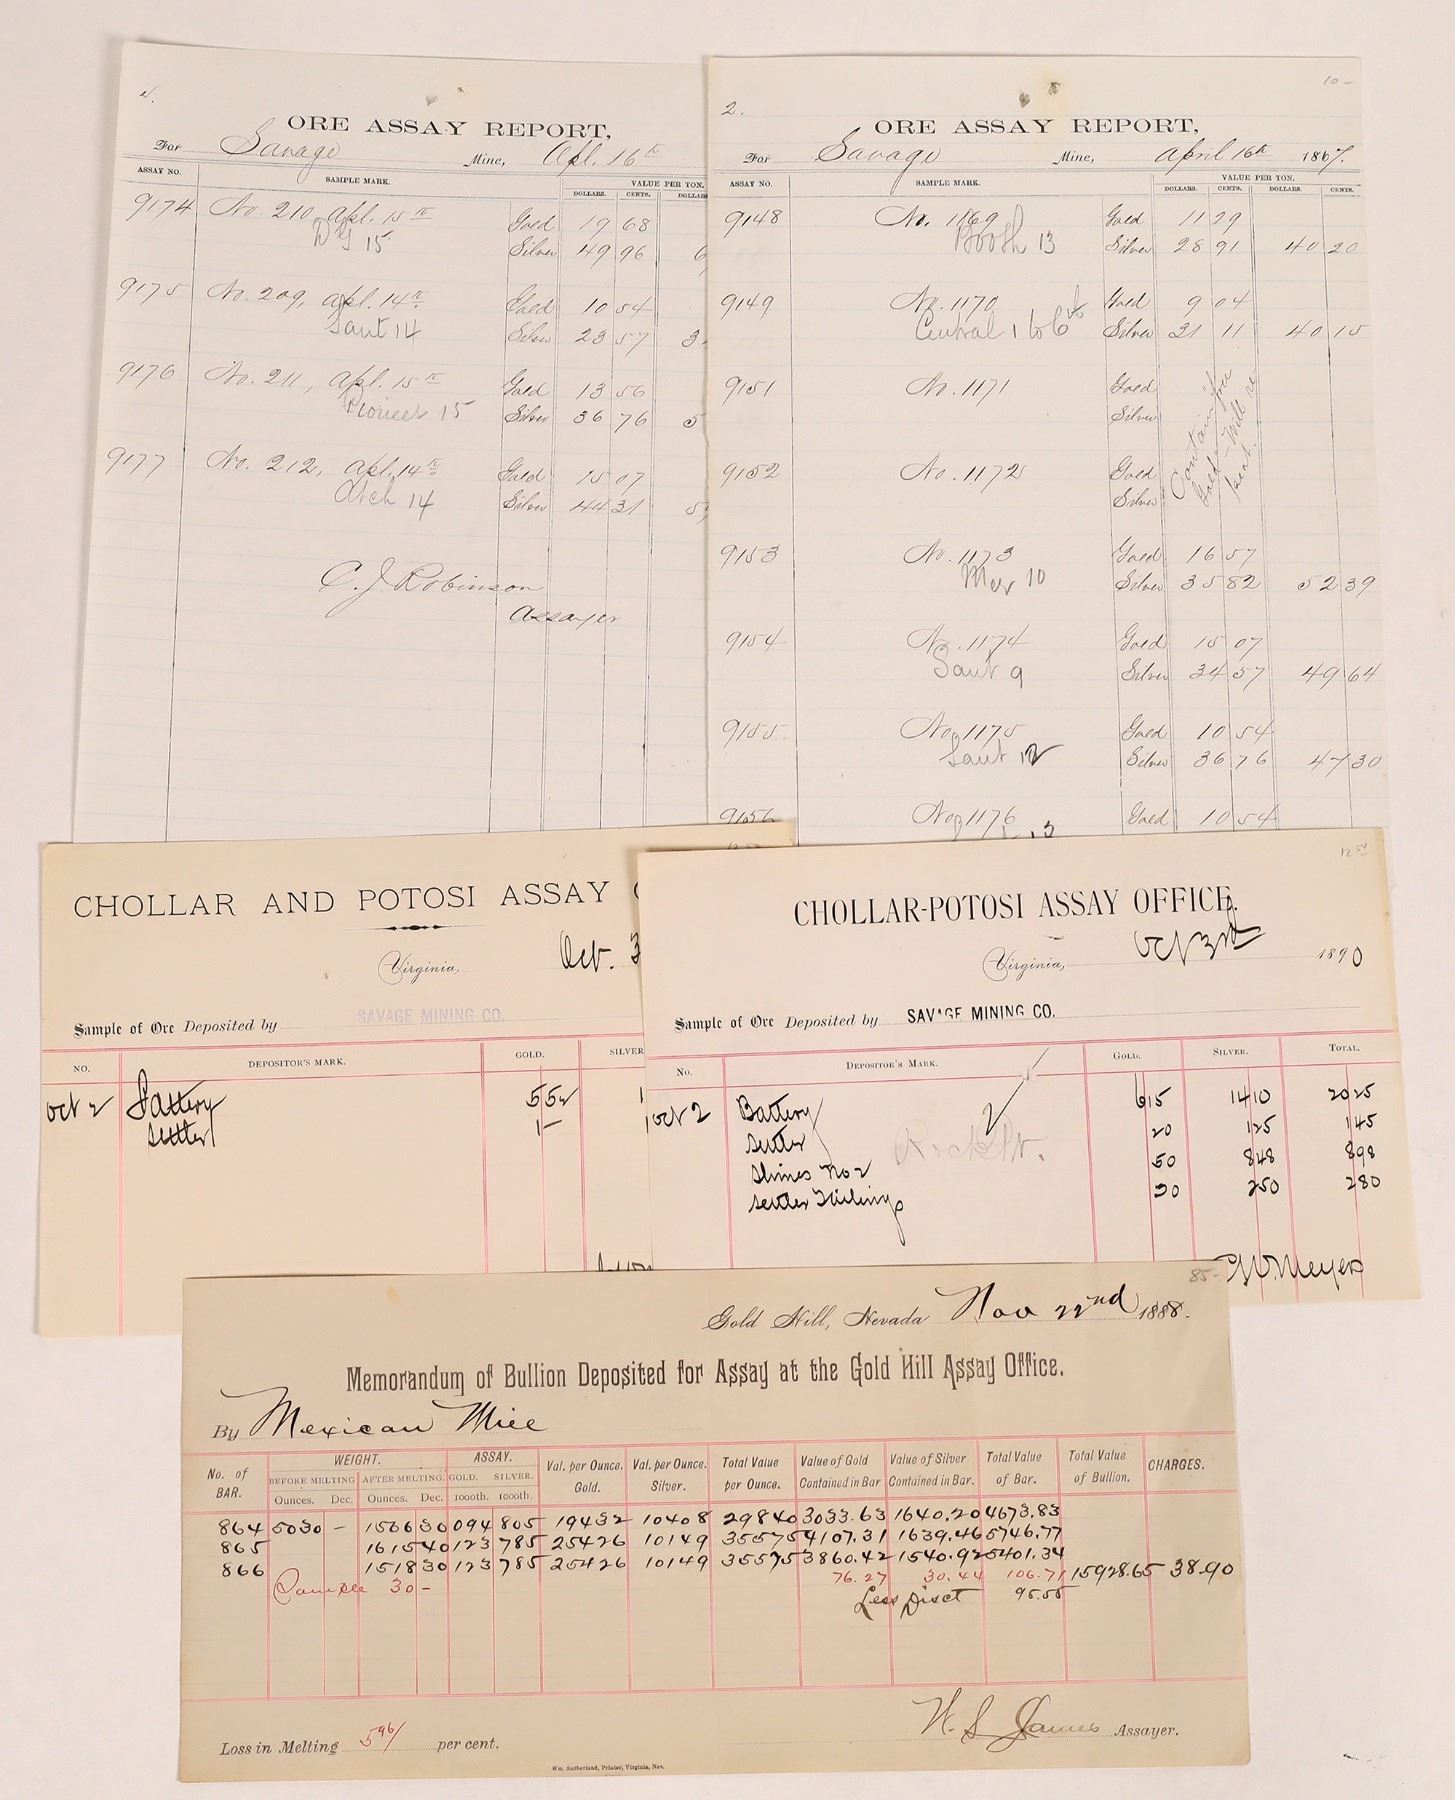 ORE ASSAY REPORT,
For Savage Mine, Apl. 16th
ASSAY NO. SAMPLE MARK. VALUE PER TON.
DOLLARS. CENTS. DOLLARS
9174 No. 210, Apl. 15th Gold 19 68
D G 15 Silver 49 96 6
9175 No. 209, Apl. 14th Gold 10 54
Saut 14 Silver 23 57 3
9176 No. 211, Apl. 15th Gold 13 56
Pioneer 15 Silver 36 76 5
9177 No. 212, Apl. 14th Gold 15 07
Arch 14 Silver 44 31 5
C. J. Robinson
Assayer
10-
2.
ORE ASSAY REPORT,
For Savage Mine, April 16th 1867.
ASSAY NO. SAMPLE MARK. VALUE PER TON.
DOLLARS. CENTS. DOLLARS. CENTS.
9148 No. 1169 Gold 11 29
Booth 13 Silver 28 91 40 20
9149 No. 1170 Gold 9 04
Central 1 to 6th Silver 31 11 40 15
9151 No. 1171 Gold
Silver
Contain free
Gold - Will re
peat.
9152 No. 1172 Gold
Silver
9153 No. 1173 Gold 16 57
10 Silver 35 82 52 39
9154 No. 1174 Gold 15 07
Saut 9 Silver 34 57 49 64
9155 No. 1175 Gold 10 54
Saut 12 Silver 36 76 47 30
9156 No. 1176 Gold 10 54
13
CHOLLAR AND POTOSI ASSAY
Virginia, Oct. 3
Sample of Ore Deposited by SAVAGE MINING CO.
NO. DEPOSITOR'S MARK. GOLD. SILVER
Oct 2 Battery 5 52 1
Settler 1 - 1
12 50
CHOLLAR-POTOSI ASSAY OFFICE.
Virginia, Oct 3rd 1890
Sample of Ore Deposited by SAVAGE MINING CO.
No. DEPOSITOR'S MARK. GOLD. SILVER. TOTAL.
Oct 2 Battery 6 15 14 10 20 25
Settler 20 1 25 1 45
Slimes No 2 50 8 48 8 98
Settler Tailings 30 2 50 2 80
2
G W. Meyers
85-
Gold Hill, Nevada Nov 22nd 1888.
Memorandum of Bullion Deposited for Assay at the Gold Hill Assay Office.
By Mexican Mill
No. of BAR. WEIGHT. ASSAY. Val. per Ounce. Gold. Val. per Ounce. Silver. Total Value per Ounce. Value of Gold Contained in Bar Value of Silver Contained in Bar. Total Value of Bar. Total Value of Bullion. CHARGES.
BEFORE MELTING AFTER MELTING. GOLD. SILVER.
Ounces. Dec. Ounces. Dec. 1000th. 1000th.
864 5030 - 1566 30 094 805 19432 10408 29840 3033.63 1640.20 4673.83
865 1615 40 123 785 25426 10149 35575 4107.31 1639.46 5746.77
866 1518 30 123 785 25426 10149 35575 3860.42 1540.92 5401.34
Sample 30 - 76.27 30.44 106.71 15928.65 38.90
Less Disct 95.55
W. S. James Assayer.
Loss in Melting 5 96/ per cent.
Wm. Sutherland, Printer, Virginia, Nev.